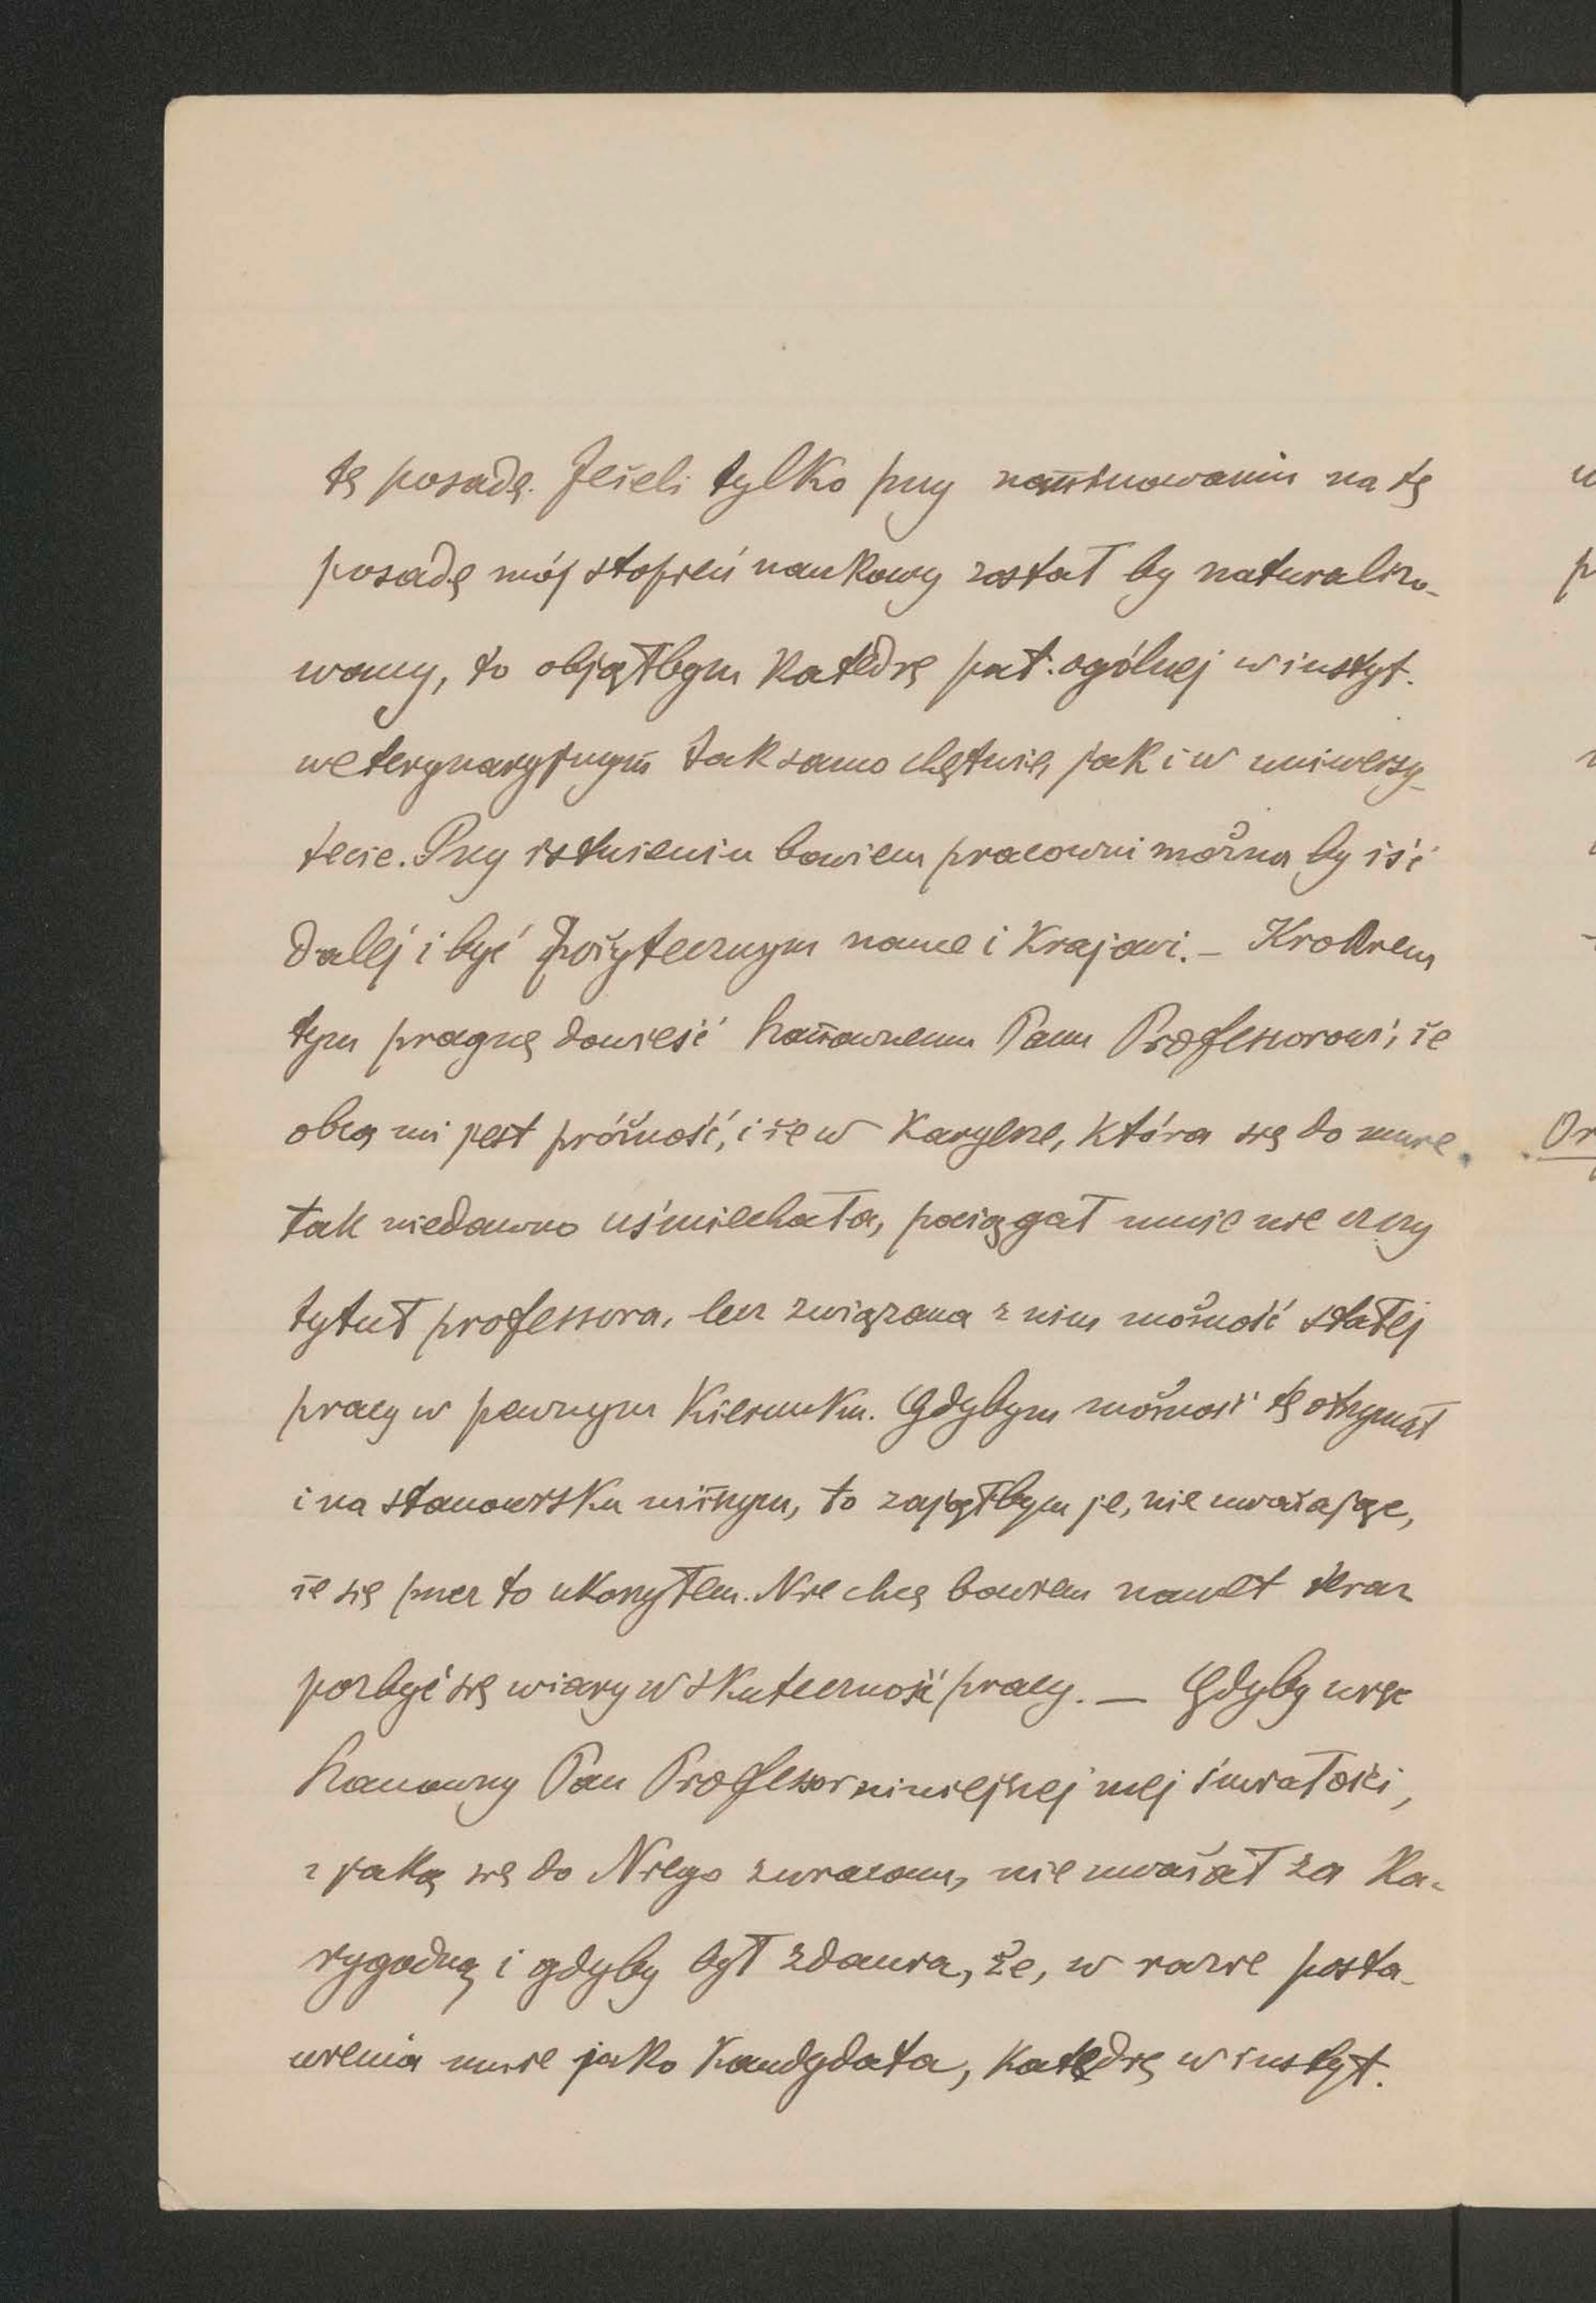 tę posadę. Jeżeli tylko przy naminowaniu na tę
posadę mój stopień naukowy został by naturalizo-
wany, to objąłbym katedrę pat. ogólnej w instyt.
weterynaryjnym tak samo chętnie, jak i w uniwersy-
tecie. Przy istnieniu bowiem pracowni można by iść
dalej i być pożytecznym nauce i krajowi. – Krokiem
tym pragnę dowieść Szanownemu Panu Professorowi, że
obcą mi jest próżność, i że w karyerze, która się do mnie
tak niedawno uśmiechała, pociągał mnie nie czczy
tytuł professora, lecz związana z nim możność stałej
pracy w pewnym kierunku. Gdybym możność tę otrzymał
i na stanowisku niższym, to zająłbym je, nie uważając,
że się przez to ukorzyłem. Nie chcę bowiem nawet teraz
pozbyć się wiary w skuteczność pracy. — Gdyby więc
Szanowny Pan Professor niniejszej mej śmiałości,
z jaką się do Niego zwracam, nie uważał za ka-
rygodną i gdyby był zdania, że, w razie posta-
wienia mnie jako kandydata, katedrę w instyt.